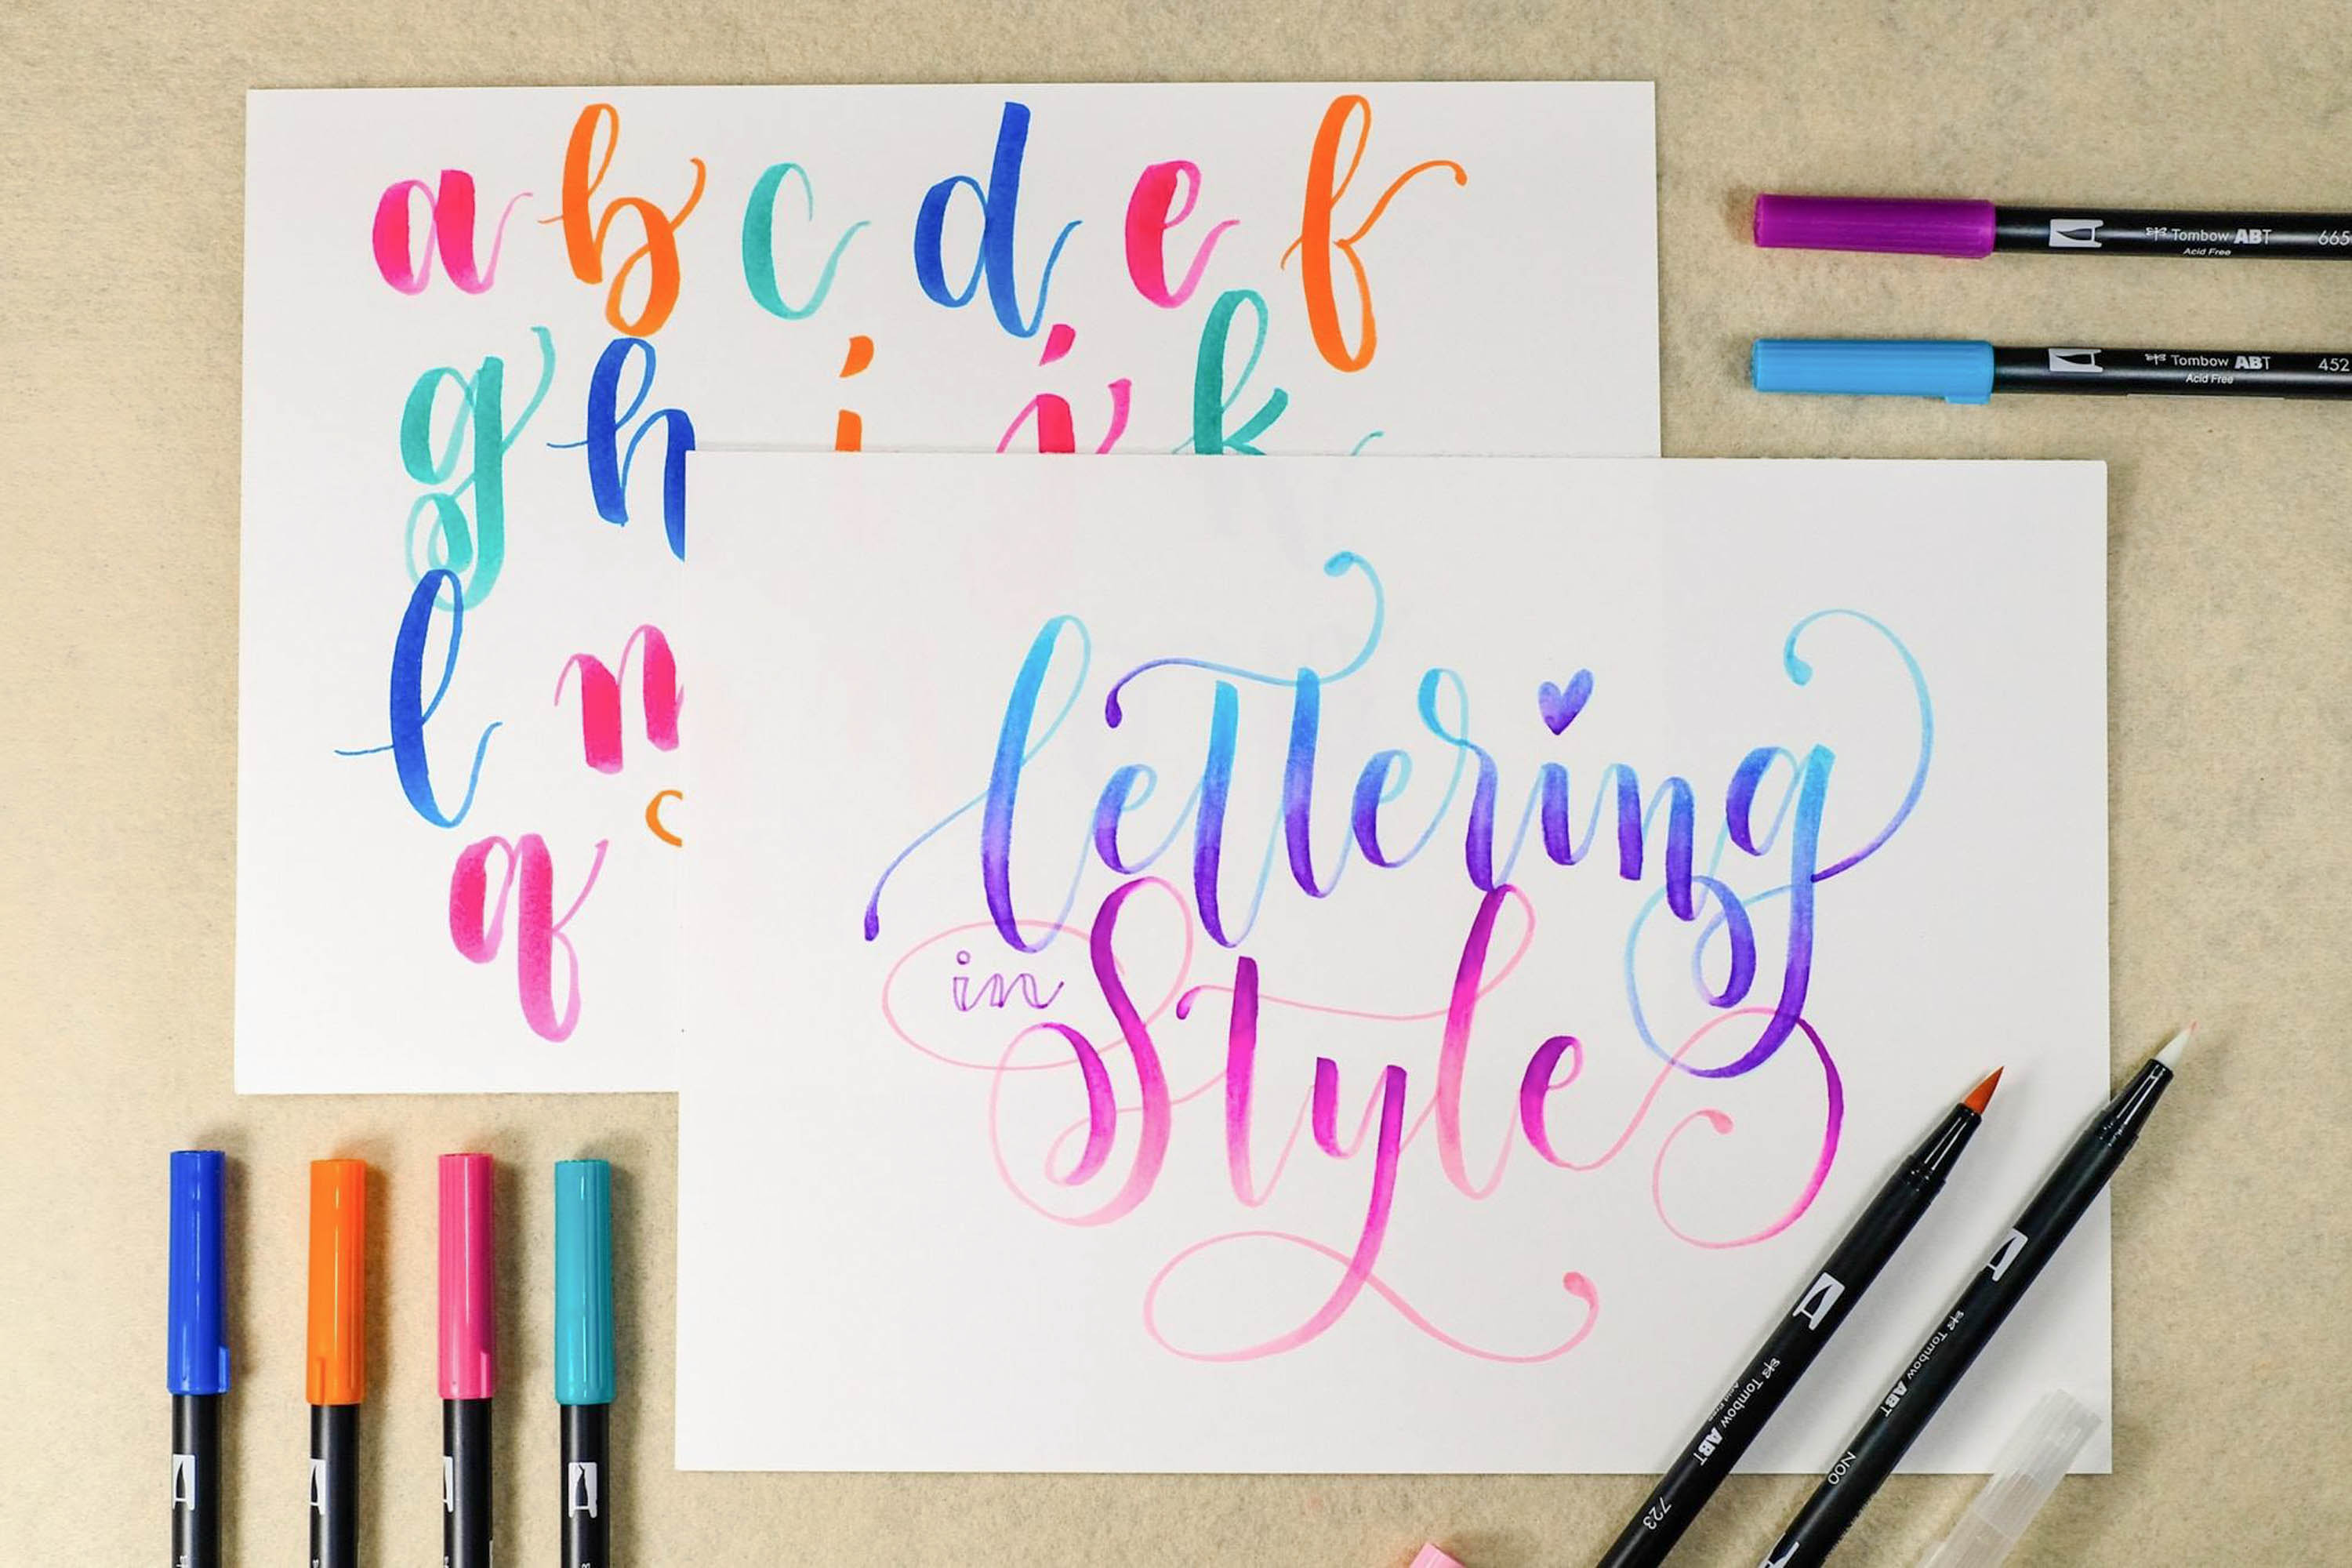 a b c d e f
g h i j k
l m
q
lettering
in Style
Tombow ABT 665
Acid Free
Tombow ABT 452
Acid Free
Tombow ABT
Acid Free
723
Tombow ABT
N00